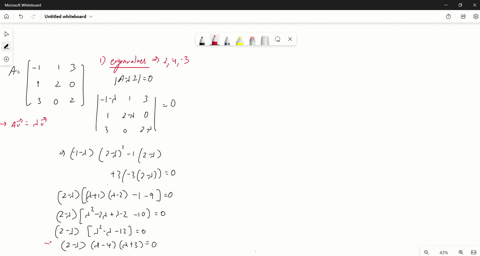 Microsoft Whiteboard
Untitled whiteboard
A = [ -1 1 3
1 2 0
3 0 2 ]
→ Av⃗ = λv⃗
1) eigenvalues → 2, 4, -3
|A-λI| = 0
| -1-λ 1 3 |
| 1 2-λ 0 | = 0
| 3 0 2-λ |
⇒ (-1-λ) (2-λ)² - 1 (2-λ)
+ 3 (-3(2-λ)) = 0
(2-λ) [(λ+1) (λ-2) - 1 - 9] = 0
(2-λ) [λ² - 2λ + λ - 2 - 10] = 0
(2-λ) [λ² - λ - 12] = 0
(2-λ) (λ-4) (λ+3) = 0
43%